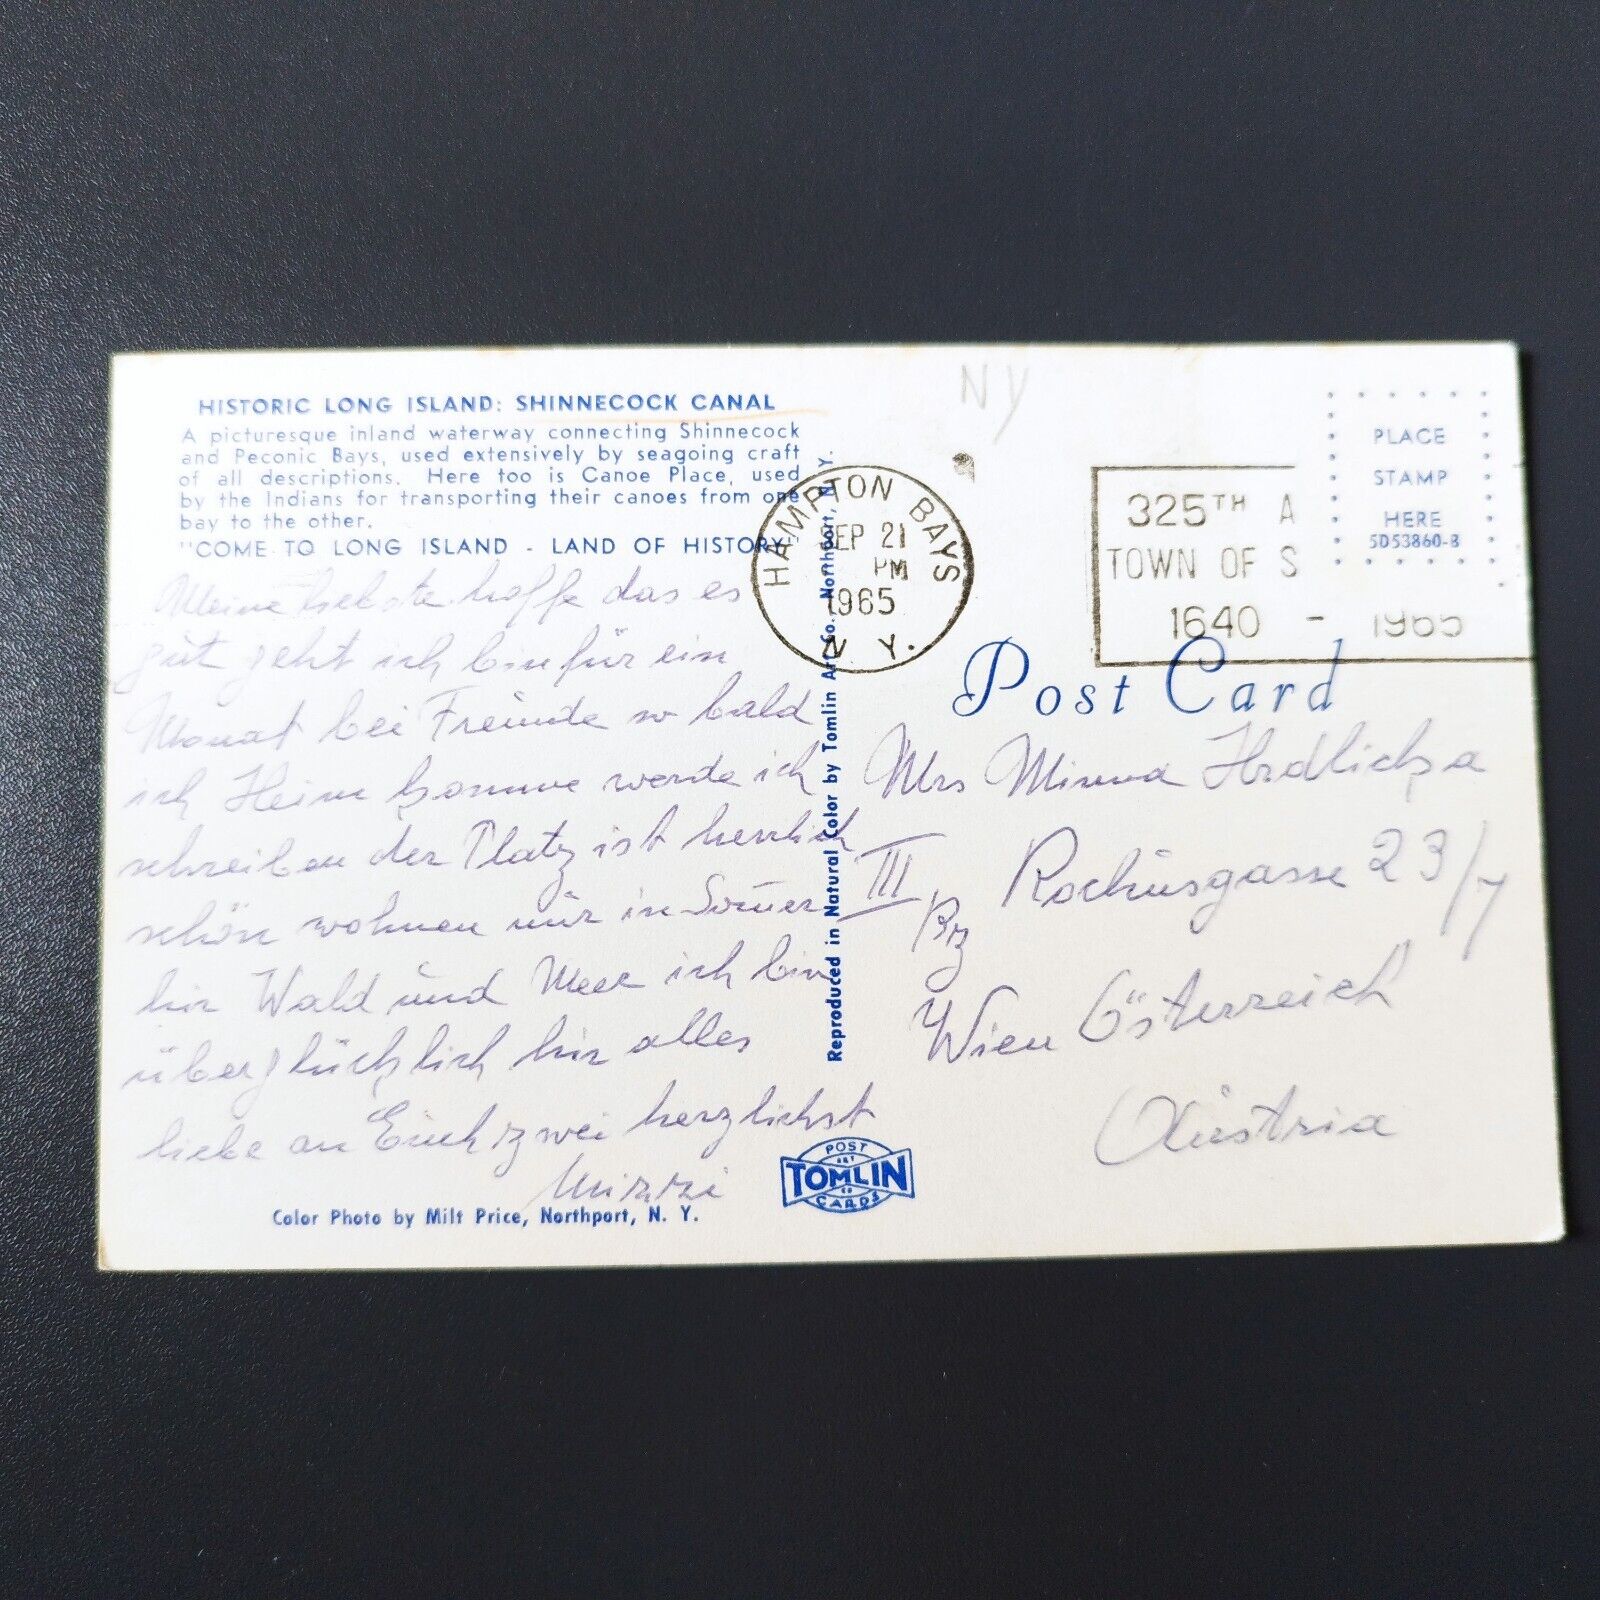 HISTORIC LONG ISLAND: SHINNECOCK CANAL
A picturesque inland waterway connecting Shinnecock
and Peconic Bays, used extensively by seagoing craft
of all descriptions. Here too is Canoe Place, used
by the Indians for transporting their canoes from one
bay to the other.
"COME TO LONG ISLAND - LAND OF HISTORY"
Meine liebste hoffe das es
gut geht ich bin für ein
Monat bei Freunde so bald
ich Heim komme werde ich
schreiben der Platz ist herrlich
schön wohnen nur in Somer
hir Wald und Meer ich bin
überglücklich hir alles
liebe an Euch zwei herzlichst
Mizzi
Color Photo by Milt Price, Northport, N. Y.
Reproduced in Natural Color by Tomlin Art Co. Northport, N. Y.
POST
ART
TOMLIN
CO
CARDS
NY
HAMPTON BAYS
SEP 21
PM
1965
N Y.
325TH A
TOWN OF S
1640 - 1965
PLACE
STAMP
HERE
5D53860-B
Post Card
Mrs Minna Hrdlicka
III Bz Rochusgasse 23/7
Wien Österreich
Austria